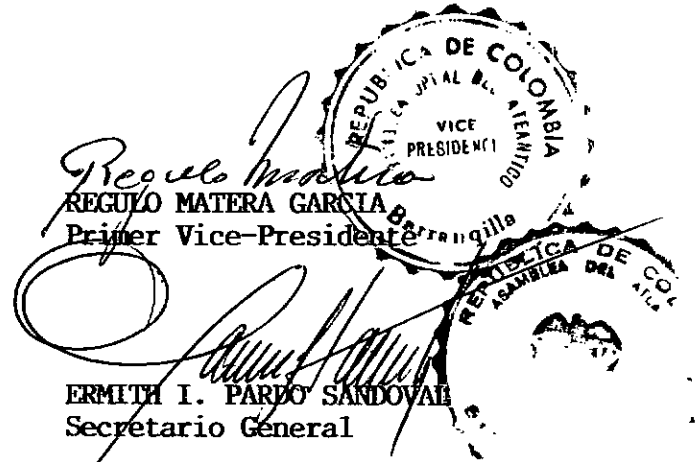 REPUBLICA DE COLOMBIA
DEL ATLANTICO
VICE
PRESIDENCI
Barranquilla
Regulo Matera
REGULO MATERA GARCIA
Primer Vice-Presidente
REPUBLICA DE COL
ASAMBLEA DEL ATLA
ERMITH I. PARDO SANDOVAL
Secretario General